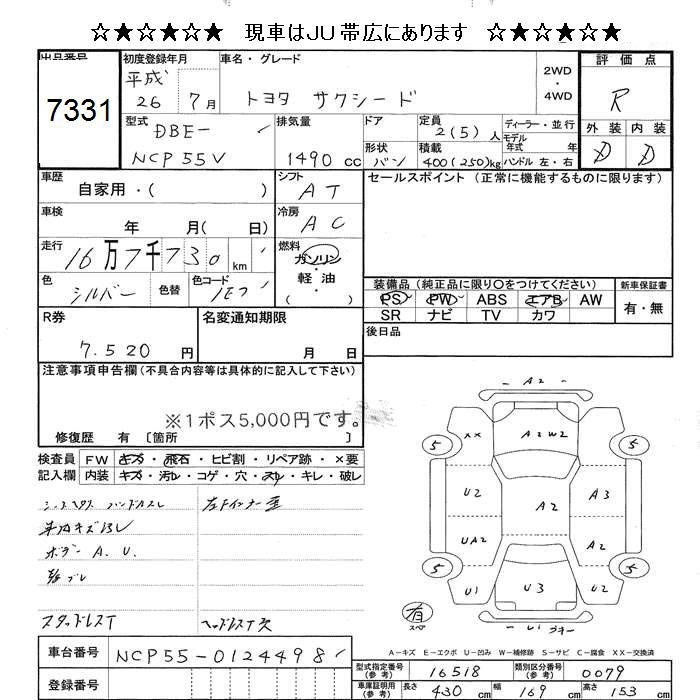 ☆★☆★☆★ 現車はJU帯広にあります ☆★☆★☆★
出品番号
7331
初度登録年月
平成 26 7月
車名・グレード
トヨタ サクシード
2WD
・
4WD
評価点
R
外装 内装
D D
型式
DBE-
NCP55V
排気量
1490 cc
ドア
形状
バン
定員
2(5)人
積載
400(250)kg
ディーラー・並行
モデル
年式 年
ハンドル 左・右
車歴
自家用・( )
シフト
AT
セールスポイント (正常に機能するものに限ります)
車検
年 月( 日)
冷房
AC
走行
16万7千730 km
燃料
ガソリン
・
軽油
色
シルバー
色替
色コード
1E7
装備品 (純正品に限り○をつけてください)
PS PW ABS エアB AW
SR ナビ TV カワ
新車保証書
有・無
R券
7,520 円
名変通知期限
月 日
後日品
注意事項申告欄(不具合内容等は具体的に記入して下さい)
※1ポス5,000円です。
修復歴 有 〔箇所 〕
検査員
記入欄
FW キズ・飛石・ヒビ割・リペア跡・×要
内装 キズ・汚レ・コゲ・穴・スレ・キレ・破レ
車内キズ汚レ
ボデー A. U.
スタッドレスT
A2
XX A2W2
5 5
U2 A2 A3
UA2 A2
5 5
U1 U3 U2
有
スペア
U1
A-キズ E-エクボ U-凹み W-補修跡 S-サビ C-腐食 XX-交換済
車台番号
NCP55-0124498
登録番号
型式指定番号
(参考)
16518
類別区分番号
(参考)
0079
車庫証明用
(参考)
長さ 430 cm
幅 169 cm
高さ 153 cm